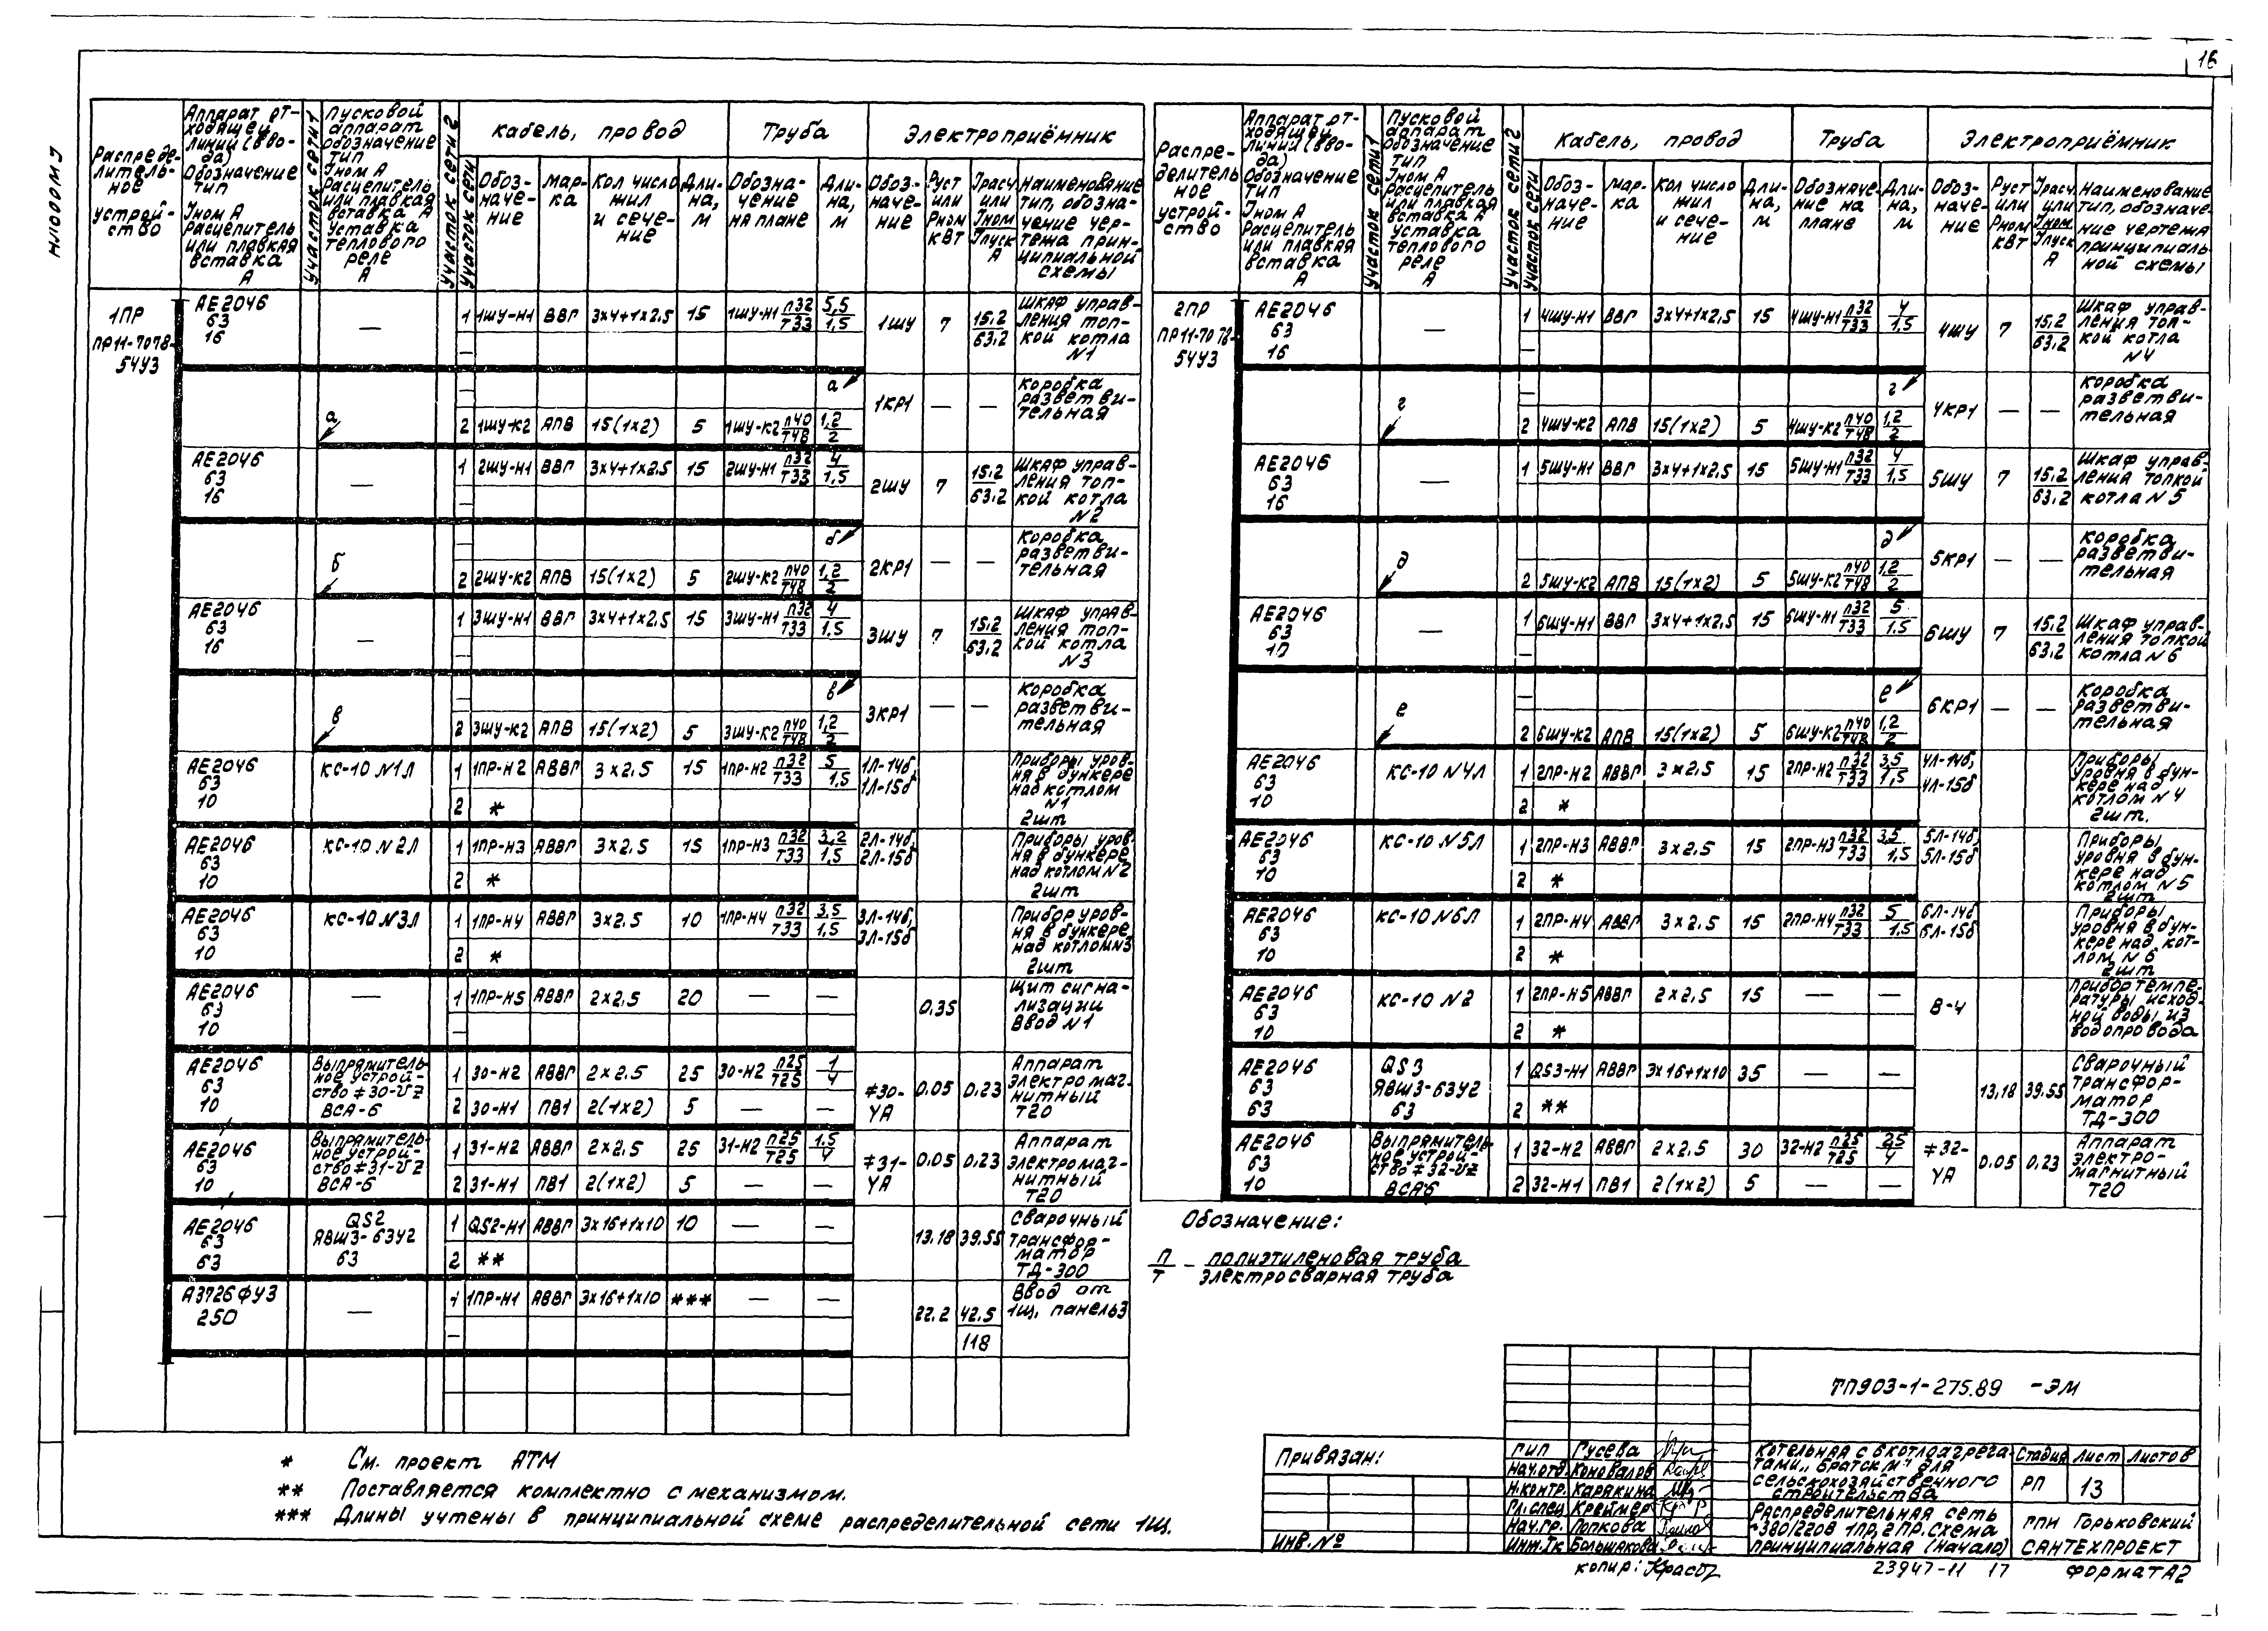 16
Распреде-
литель-
ное
устрой-
ство
Аппарат от-
ходящей
линии (вво-
да)
Обозначение
тип
Iном А
Расцепитель
или плавкая
вставка
А
Участок сети 1
Пусковой
аппарат
обозначение
тип
Iном А
Расцепитель
или плавкая
вставка А
Уставка
теплового
реле
А
Участок сети 2
Участок сети
Кабель, провод
Обоз-
наче-
ние
Мар-
ка
Кол число
жил
и сече-
ние
Дли-
на,
м
Труба
Обозна-
чение
на плане
Дли-
на,
м
Электроприёмник
Обоз-
наче-
ние
Руст
или
Рном
кВт
Iрасч
или
Iном
Iпуск
А
Наименование
тип, обозна-
чение чер-
тежа прин-
ципиальной
схемы
1ПР
ПР11-7078-
54У3
АЕ2046
63
16
—
1 1ШУ-Н1 ВВГ 3х4+1х2,5 15 1ШУ-Н1 П32/Т33 5,5/1,5
1ШУ 7 15,2/63,2
Шкаф управ-
ления топ-
кой котла
N1
а
а
2 1ШУ-К2 АПВ 15(1х2) 5 1ШУ-К2 П40/Т48 1,2/2
1КР1 — —
Коробка
разветви-
тельная
АЕ2046
63
16
—
1 2ШУ-Н1 ВВГ 3х4+1х2,5 15 2ШУ-Н1 П32/Т33 4/1,5
2ШУ 7 15,2/63,2
Шкаф управ-
ления топ-
кой котла
N2
б
б
2 2ШУ-К2 АПВ 15(1х2) 5 2ШУ-К2 П40/Т48 1,2/2
2КР1 — —
Коробка
разветви-
тельная
АЕ2046
63
16
—
1 3ШУ-Н1 ВВГ 3х4+1х2,5 15 3ШУ-Н1 П32/Т33 4/1,5
3ШУ 7 15,2/63,2
Шкаф управ-
ления топ-
кой котла
N3
в
в
2 3ШУ-К2 АПВ 15(1х2) 5 3ШУ-К2 П40/Т48 1,2/2
3КР1 — —
Коробка
разветви-
тельная
АЕ2046
63
10
КС-10 N1Л
1 1ПР-Н2 АВВГ 3х2,5 15 1ПР-Н2 П32/Т33 5/1,5
2 *
1Л-14б
1Л-15б
Приборы уров-
ня в бункере
над котлом
N1
2шт
АЕ2046
63
10
КС-10 N2Л
1 1ПР-Н3 АВВГ 3х2,5 15 1ПР-Н3 П32/Т33 3,2/1,5
2 *
2Л-14б,
2Л-15б
Приборы уров-
ня в бункере
над котлом N2
2шт
АЕ2046
63
10
КС-10 N3Л
1 1ПР-Н4 АВВГ 3х2,5 10 1ПР-Н4 П32/Т33 3,5/1,5
2 *
3Л-14б,
3Л-15б
Прибор уров-
ня в бункере
над котлом N3
2шт
АЕ2046
63
10
—
1 1ПР-Н5 АВВГ 2х2,5 20 — —
0,35
Щит сигна-
лизации
Ввод N1
АЕ2046
63
10
Выпрямитель-
ное устрой-
ство ≠30-VZ
ВСА-6
1 30-Н2 АВВГ 2х2,5 25 30-Н2 П25/Т25 1/4
2 30-Н1 ПВ1 2(1х2) 5 — —
≠30-
YA
0,05 0,23
Аппарат
электромаг-
нитный
Т20
АЕ2046
63
10
Выпрямитель-
ное устрой-
ство ≠31-VZ
ВСА-6
1 31-Н2 АВВГ 2х2,5 25 31-Н2 П25/Т25 1,5/4
2 31-Н1 ПВ1 2(1х2) 5 — —
≠31-
YA
0,05 0,23
Аппарат
электромаг-
нитный
Т20
АЕ2046
63
63
QS2
ЯВШ3-63У2
63
1 QS2-Н1 АВВГ 3х16+1х10 10 — —
2 **
13,18 39,55
Сварочный
трансфор-
матор
ТД-300
А3726ФУ3
250
—
1 1ПР-Н1 АВВГ 3х16+1х10 *** — —
22,2 42,5/118
Ввод от
1Щ, панель 3
* См. проект АТМ
** Поставляется комплектно с механизмом.
*** Длины учтены в принципиальной схеме распределительной сети 1Щ.
Распре-
делитель
ное
устрой-
ство
Аппарат от-
ходящей
линии (вво-
да)
Обозначение
тип
Iном А
Расцепитель
или плавкая
вставка
А
Участок сети 1
Пусковой
аппарат
обозначение
тип
Iном А
Расцепитель
или плавкая
вставка А
Уставка
теплового
реле
А
Участок сети 2
Участок сети
Кабель, провод
Обоз-
наче-
ние
Мар-
ка
Кол число
жил
и сече-
ние
Дли-
на,
м
Труба
Обозначе-
ние на
плане
Дли-
на,
м
Электроприёмник
Обоз-
наче-
ние
Руст
или
Рном
кВт
Iрасч
или
Iном
Iпуск
А
Наименование
тип, обозначе-
ние чертежа
принципиаль-
ной схемы
2ПР
ПР11-7078-
54У3
АЕ2046
63
16
—
1 4ШУ-Н1 ВВГ 3х4+1х2,5 15 4ШУ-Н1 П32/Т33 4/1,5
4ШУ 7 15,2/63,2
Шкаф управ-
ления топ-
кой котла
N4
г
г
2 4ШУ-К2 АПВ 15(1х2) 5 4ШУ-К2 П40/Т48 1,2/2
4КР1 — —
Коробка
разветви-
тельная
АЕ2046
63
16
—
1 5ШУ-Н1 ВВГ 3х4+1х2,5 15 5ШУ-Н1 П32/Т33 4/1,5
5ШУ 7 15,2/63,2
Шкаф управ-
ления топкой
котла N5
д
д
2 5ШУ-К2 АПВ 15(1х2) 5 5ШУ-К2 П40/Т48 1,2/2
5КР1 — —
Коробка
разветви-
тельная
АЕ2046
63
10
—
1 6ШУ-Н1 ВВГ 3х4+1х2,5 15 6ШУ-Н1 П32/Т33 5/1,5
6ШУ 7 15,2/63,2
Шкаф управ-
ления топкой
котла N6
е
е
2 6ШУ-К2 АПВ 15(1х2) 5 6ШУ-К2 П40/Т48 1,2/2
6КР1 — —
Коробка
разветви-
тельная
АЕ2046
63
10
КС-10 N4Л
1 2ПР-Н2 АВВГ 3х2,5 15 2ПР-Н2 П32/Т33 3,5/1,5
2 *
4Л-14б,
4Л-15б
Приборы
уровня в бун-
кере над
котлом N4
2шт.
АЕ2046
63
10
КС-10 N5Л
1 2ПР-Н3 АВВГ 3х2,5 15 2ПР-Н3 П32/Т33 3,5/1,5
2 *
5Л-14б,
5Л-15б
Приборы
уровня в бун-
кере над
котлом N5
2шт
АЕ2046
63
10
КС-10 N6Л
1 2ПР-Н4 АВВГ 3х2,5 15 2ПР-Н4 П32/Т33 5/1,5
2 *
6Л-14б
6Л-15б
Приборы
уровня в бун-
кере над кот-
лом N6
2шт
АЕ2046
63
10
КС-10 N2
1 2ПР-Н5 АВВГ 2х2,5 15 — —
2 *
В-4
Прибор темпе-
ратуры исход-
ной воды из
водопровода
АЕ2046
63
63
QS3
ЯВШ3-63У2
63
1 QS3-Н1 АВВГ 3х16+1х10 35 — —
2 **
13,18 39,55
Сварочный
трансфор-
матор
ТД-300
АЕ2046
63
10
Выпрямитель-
ное устрой-
ство ≠32-VZ
ВСА6
1 32-Н2 АВВГ 2х2,5 30 32-Н2 П25/Т25 25/4
2 32-Н1 ПВ1 2(1х2) 5 — —
≠32-
YA
0,05 0,23
Аппарат
электро-
магнитный
Т20
Обозначение:
П/Т - полиэтиленовая труба / электросварная труба
Привязан:
Инв.№
ТП903-1-275.89 -ЭМ
ГИП Гусева
Нач.отд. Коновалов
Н.контр. Карякина
Гл.спец Креймер
Нач.гр. Попкова
Инж.Iк Большакова
Котельная с 6 котлоагрега-
тами „Братск М" для
сельскохозяйственного
строительства
Стадия Лист Листов
РП 13
Распределительная сеть
~380/220В 1ПР, 2ПР. Схема
принципиальная (начало)
ГПИ Горьковский
САНТЕХПРОЕКТ
копир:
23947-11 17
Формат А2